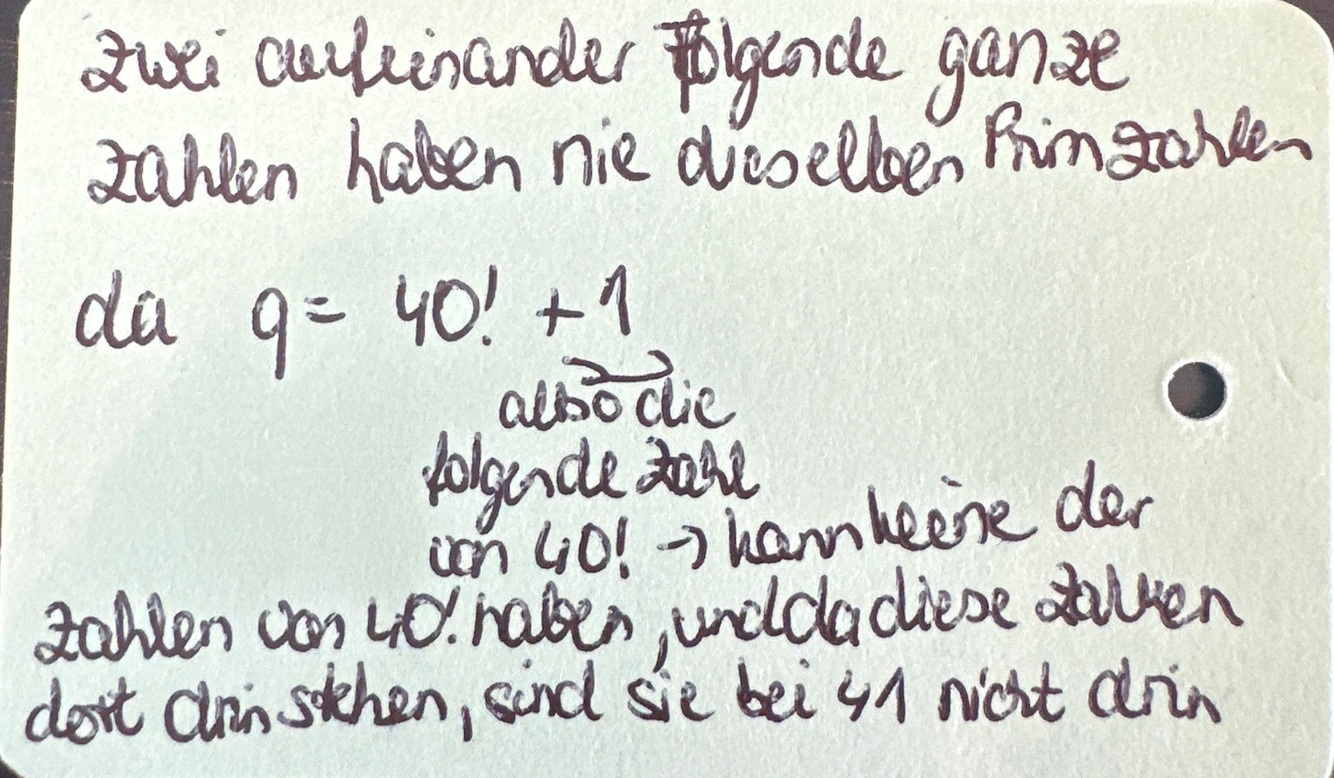 zwei aufeinander folgende ganze
zahlen haben nie dieselben Primzahlen
da q = 40! + 1
also die
folgende Zahl
von 40! → kann keine der
zahlen von 40! haben, und da diese zahlen
dort drin stehen, sind sie bei 41 nicht drin